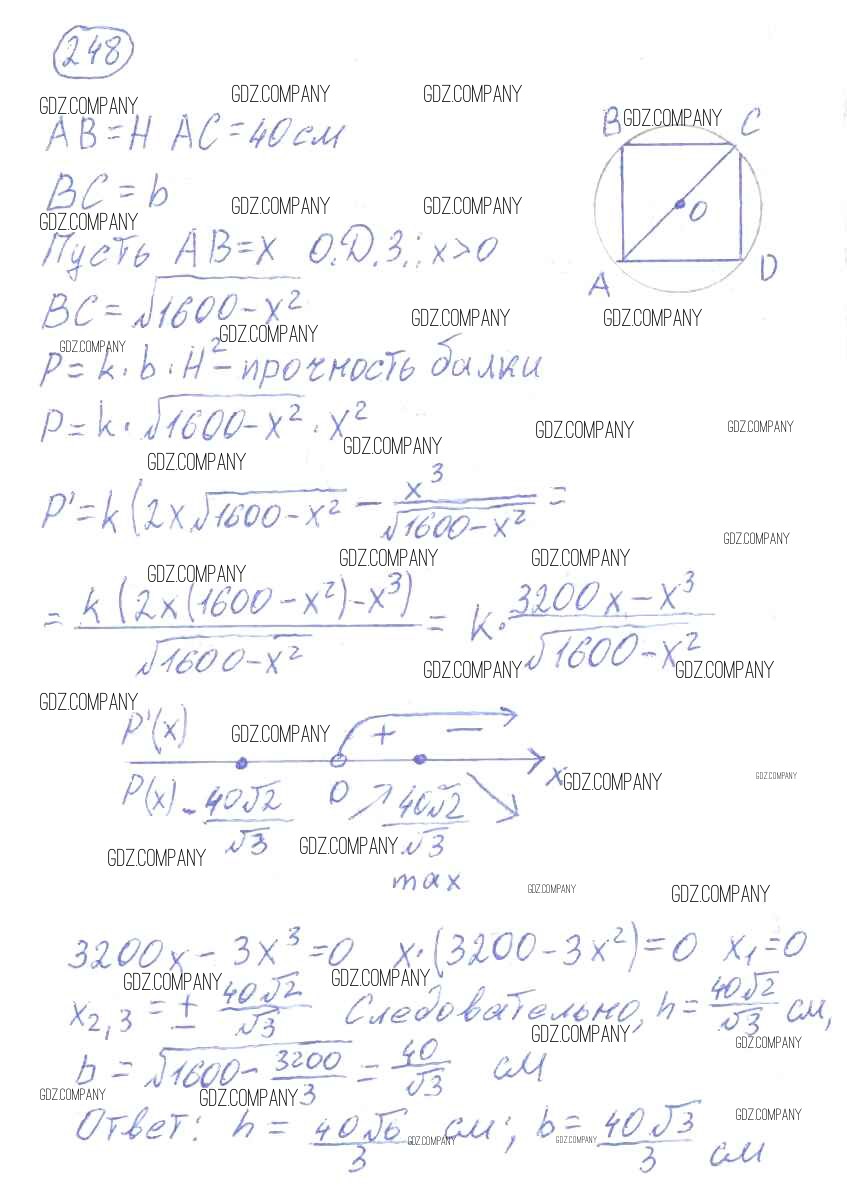 248
GDZ.COMPANY GDZ.COMPANY GDZ.COMPANY GDZ.COMPANY
AB = H AC = 40 см
B C
O
A D
BC = b
GDZ.COMPANY GDZ.COMPANY GDZ.COMPANY
Пусть AB = x О.Д.З.: x > 0
BC = √1600 - x²
GDZ.COMPANY GDZ.COMPANY GDZ.COMPANY GDZ.COMPANY
P = k · b · H² - прочность балки
P = k · √1600 - x² · x²
GDZ.COMPANY GDZ.COMPANY GDZ.COMPANY GDZ.COMPANY
P' = k (2x √1600 - x² - x³/√1600 - x² =
GDZ.COMPANY GDZ.COMPANY GDZ.COMPANY GDZ.COMPANY
= k (2x (1600 - x²) - x³)/√1600 - x² = k · 3200x - x³/√1600 - x²
GDZ.COMPANY GDZ.COMPANY
GDZ.COMPANY GDZ.COMPANY
P'(x) + -
x
GDZ.COMPANY GDZ.COMPANY
P(x) - 40√2/√3 0 40√2/√3
GDZ.COMPANY GDZ.COMPANY
max
GDZ.COMPANY GDZ.COMPANY
3200x - 3x³ = 0 x · (3200 - 3x²) = 0 x₁ = 0
GDZ.COMPANY GDZ.COMPANY
x₂,₃ = ± 40√2/√3 Следовательно, h = 40√2/√3 см,
GDZ.COMPANY GDZ.COMPANY
b = √1600 - 3200/3 = 40/√3 см
GDZ.COMPANY GDZ.COMPANY GDZ.COMPANY
Ответ: h = 40√6/3 см; b = 40√3/3 см
GDZ.COMPANY GDZ.COMPANY